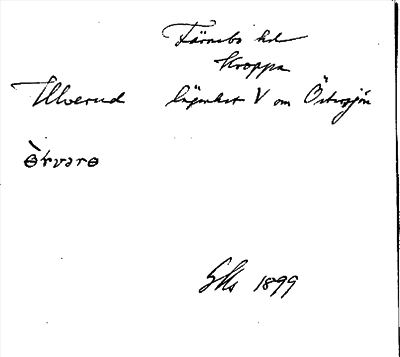 Färnebo hd
Kroppa
Ulverud lägenhet V om Östersjön
GKs 1899